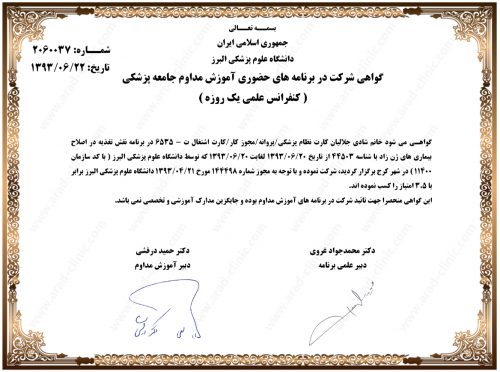 بسمه تعالی
جمهوری اسلامی ایران
دانشگاه علوم پزشکی البرز
شماره: ۲۰۶۰۰۳۷
تاریخ: ۱۳۹۳/۰۶/۲۲
گواهی شرکت در برنامه های حضوری آموزش مداوم جامعه پزشکی
( کنفرانس علمی یک روزه )
گواهی می شود خانم شادی جلالیان کارت نظام پزشکی/پروانه/مجوز کار/کارت اشتغال ت – ۶۵۳۵ در برنامه نقش تغذیه در اصلاح
بیماری های زن زاد با شناسه ۴۴۵۰۳ از تاریخ ۱۳۹۳/۰۶/۲۰ لغایت ۱۳۹۳/۰۶/۲۰ که توسط دانشگاه علوم پزشکی البرز ( با کد سازمان
۱۱۴۰۰) در شهر کرج برگزار گردید، شرکت نموده و با توجه به مجوز شماره ۱۴۴۴۹۸ مورخ ۱۳۹۳/۰۴/۲۱ دانشگاه علوم پزشکی البرز برابر
با ۳.۵ امتیاز را کسب نموده اند.
این گواهی منحصرا جهت تائید شرکت در برنامه های آموزش مداوم بوده و جایگزین مدارک آموزشی و تخصصی نمی باشد.
دکتر محمدجواد غروی
دبیر علمی برنامه
دکتر حمید درفشی
دبیر آموزش مداوم
www.arad-clinic.com